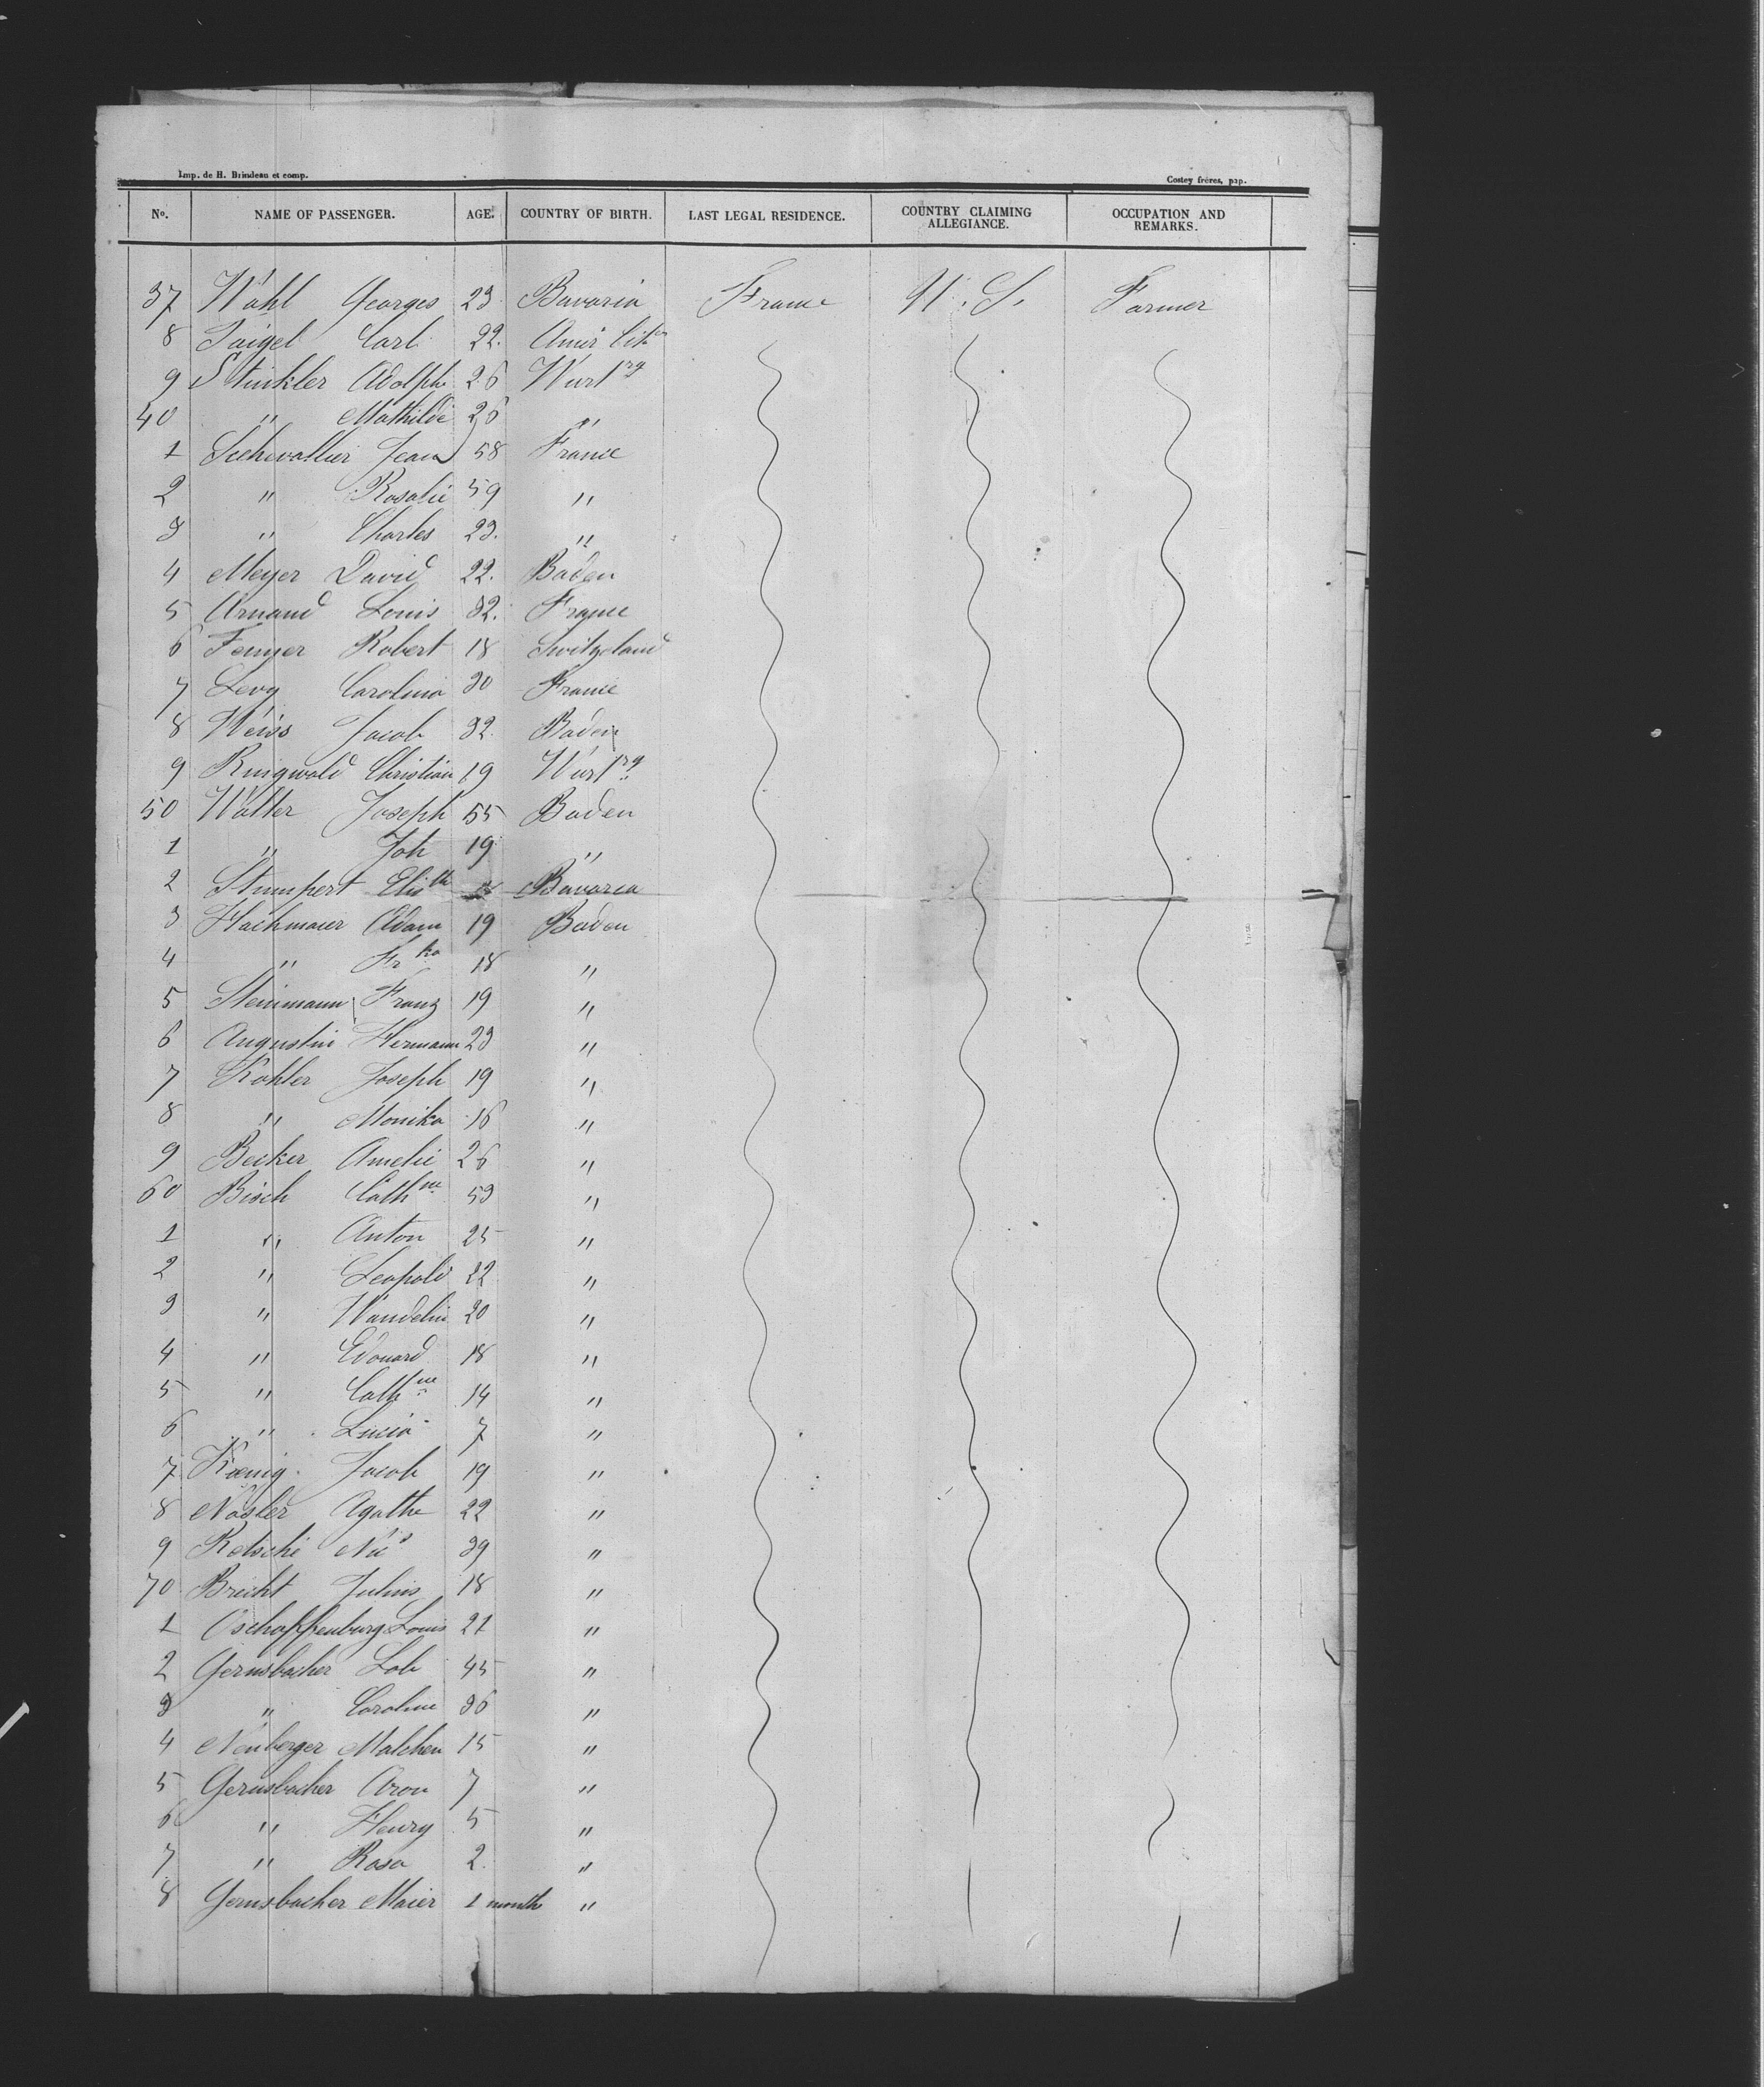 Imp. de H. Brindeau et comp. Costey frères, pap.
No. NAME OF PASSENGER. AGE. COUNTRY OF BIRTH. LAST LEGAL RESIDENCE. COUNTRY CLAIMING ALLEGIANCE. OCCUPATION AND REMARKS.
37 Wahl Georges 23 Bavaria France U. S. Farmer
8 Taigel Carl 22. Amer Citn
9 Stinkler Adolph 26 Wurtrg
40 " Mathilde 26 "
1 Jean 58 France
2 " Rosalie 59 "
3 " Charles 23. "
4 Meyer David 22. Baden
5 Arnaud Louis 32. France
6 Robert 18 Switzeland
7 Levy Carolina 30 France
8 Weiss Jacob 32. Baden
9 Ringwald Christian 19 Wurtrg
50 Walter Joseph 55 Baden
1 " Joh 19 "
2 Stumpert Elisth Bavaria
3 Hachmaier Adam 19 Baden
4 " Frka 18 "
5 Steinmann Franz 19 "
6 Augustin Hermann 23 "
7 Kohler Joseph 19 "
8 " Monika 16 "
9 Becker Amelie 26 "
60 Bisch Cathne 53 "
1 " Anton 25 "
2 " Leopold 22 "
3 " Wandelin 20 "
4 " Edouard 18 "
5 " Cathne 14 "
6 " Lucia 7 "
7 Kœnig Jacob 19 "
8 Nasler Agathe 22 "
9 Retschi Nic 39 "
70 Brecht Julius 18 "
1 Aschaffenburg Louis 21 "
2 Gernsbacher Lob 45 "
3 " Caroline 36 "
4 Neuberger Malchen 15 "
5 Gernsbacher Aron 7 "
6 " Henry 5 "
7 " Rosa 2. "
8 Gernsbacher Maier 1 month "